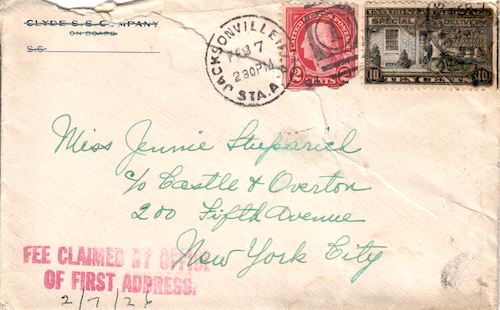 CLYDE S. S. COMPANY
ON BOARD
S.S.
JACKSONVILLE
FEB 7
2 30 PM
STA. A.
2 2
SPECIAL DELIVERY
10 TEN CENTS 10
Miss Jennie
c/o Castle & Overton
200 Fifth Avenue
New York City
FEE CLAIMED BY OFFICE
OF FIRST ADDRESS.
2/7/26